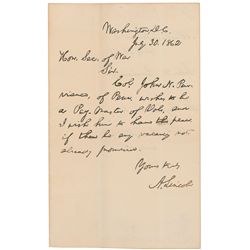 Washington, D.C.
July 30. 1862
Hon. Sec. of War
Sir.
Col. John N. Pur-
viance, of Penn, wishes to be
a Pay-Master of Vols. and
I wish him to have the place
if there be any vacancy not
already promised.
Yours truly
A. Lincoln